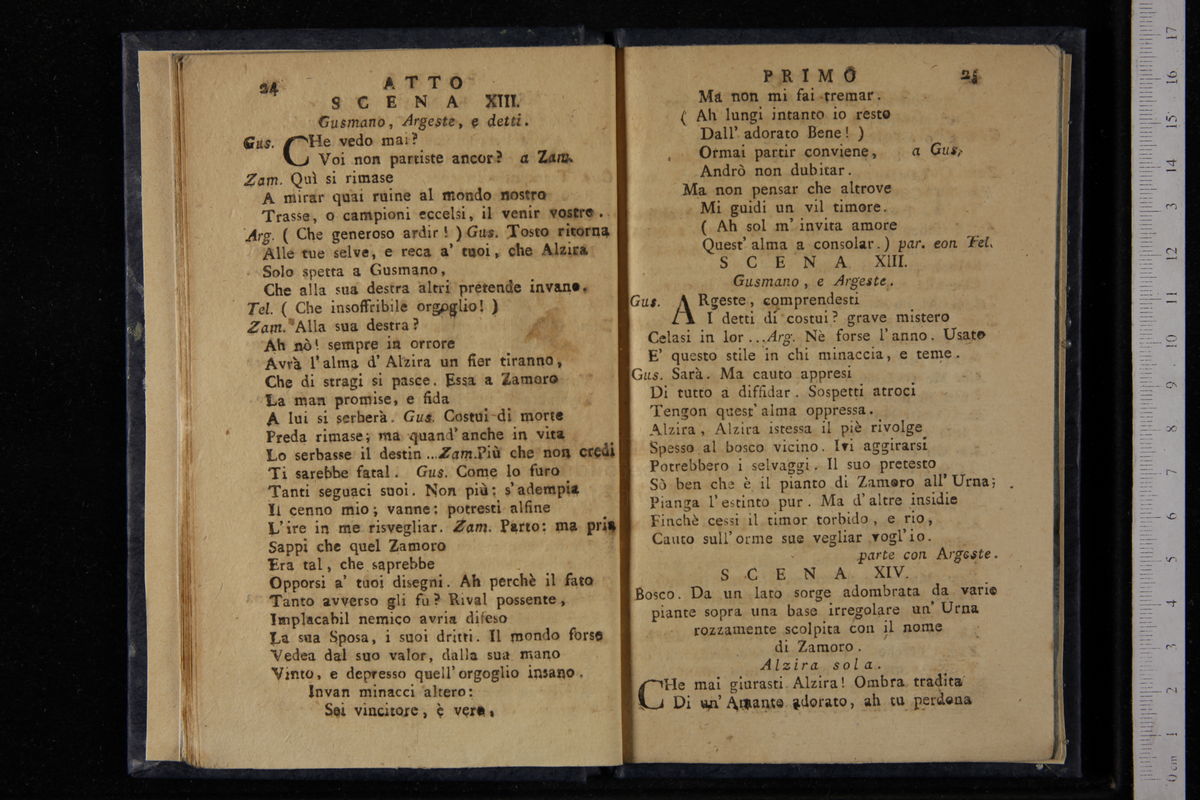 24
ATTO
SCENA XIII.
Gusmano, Argeste, e detti.
Gus. CHe vedo mai?
Voi non partiste ancor? a Zam.
Zam. Quì si rimase
A mirar quai ruine al mondo nostro
Trasse, o campioni eccelsi, il venir vostro.
Arg. ( Che generoso ardir! ) Gus. Tosto ritorna
Alle tue selve, e reca a' tuoi, che Alzira
Solo spetta a Gusmano,
Che alla sua destra altri pretende invano.
Tel. ( Che insoffribile orgoglio! )
Zam. Alla sua destra?
Ah nò! sempre in orrore
Avrà l'alma d'Alzira un fier tiranno,
Che di stragi si pasce. Essa a Zamoro
La man promise, e fida
A lui si serberà. Gus. Costui di morte
Preda rimase; ma quand'anche in vita
Lo serbasse il destin ... Zam. Più che non credi
Ti sarebbe fatal. Gus. Come lo furo
Tanti seguaci suoi. Non più: s'adempia
Il cenno mio; vanne: potresti alfine
L'ire in me risvegliar. Zam. Parto: ma pria
Sappi che quel Zamoro
Era tal, che saprebbe
Opporsi a' tuoi disegni. Ah perchè il fato
Tanto avverso gli fu? Rival possente,
Implacabil nemico avria difeso
La sua Sposa, i suoi dritti. Il mondo forse
Vedea dal suo valor, dalla sua mano
Vinto, e depresso quell'orgoglio insano.
Invan minacci altero:
Sei vincitore, è vero,
PRIMO
25
Ma non mi fai tremar.
( Ah lungi intanto io resto
Dall' adorato Bene! )
Ormai partir conviene, a Gus.
Andrò non dubitar.
Ma non pensar che altrove
Mi guidi un vil timore.
( Ah sol m' invita amore
Quest' alma a consolar. ) par. con Tel.
SCENA XIII.
Gusmano, e Argeste.
Gus. ARgeste, comprendesti
I detti di costui? grave mistero
Celasi in lor ... Arg. Nè forse l'anno. Usato
E' questo stile in chi minaccia, e teme.
Gus. Sarà. Ma cauto appresi
Di tutto a diffidar. Sospetti atroci
Tengon quest' alma oppressa.
Alzira, Alzira istessa il piè rivolge
Spesso al bosco vicino. Ivi aggirarsi
Potrebbero i selvaggi. Il suo pretesto
Sò ben che è il pianto di Zamoro all' Urna;
Pianga l'estinto pur. Ma d'altre insidie
Finchè cessi il timor torbido, e rio,
Cauto sull'orme sue vegliar vogl'io.
parte con Argeste.
SCENA XIV.
Bosco. Da un lato sorge adombrata da varie
piante sopra una base irregolare un' Urna
rozzamente scolpita con il nome
di Zamoro.
Alzira sola.
CHe mai giurasti Alzira! Ombra tradita
Di un' Amante adorato, ah tu perdona
0 cm 1 2 3 4 5 6 7 8 9 10 11 12 13 14 15 16 17